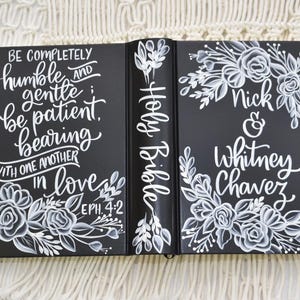 BE COMPLETELY
humble AND
gentle ;
be patient,
bearing
WITH ONE ANOTHER
in love
EPH 4:2
Holy Bible
Nick
&
Whitney
Chavez